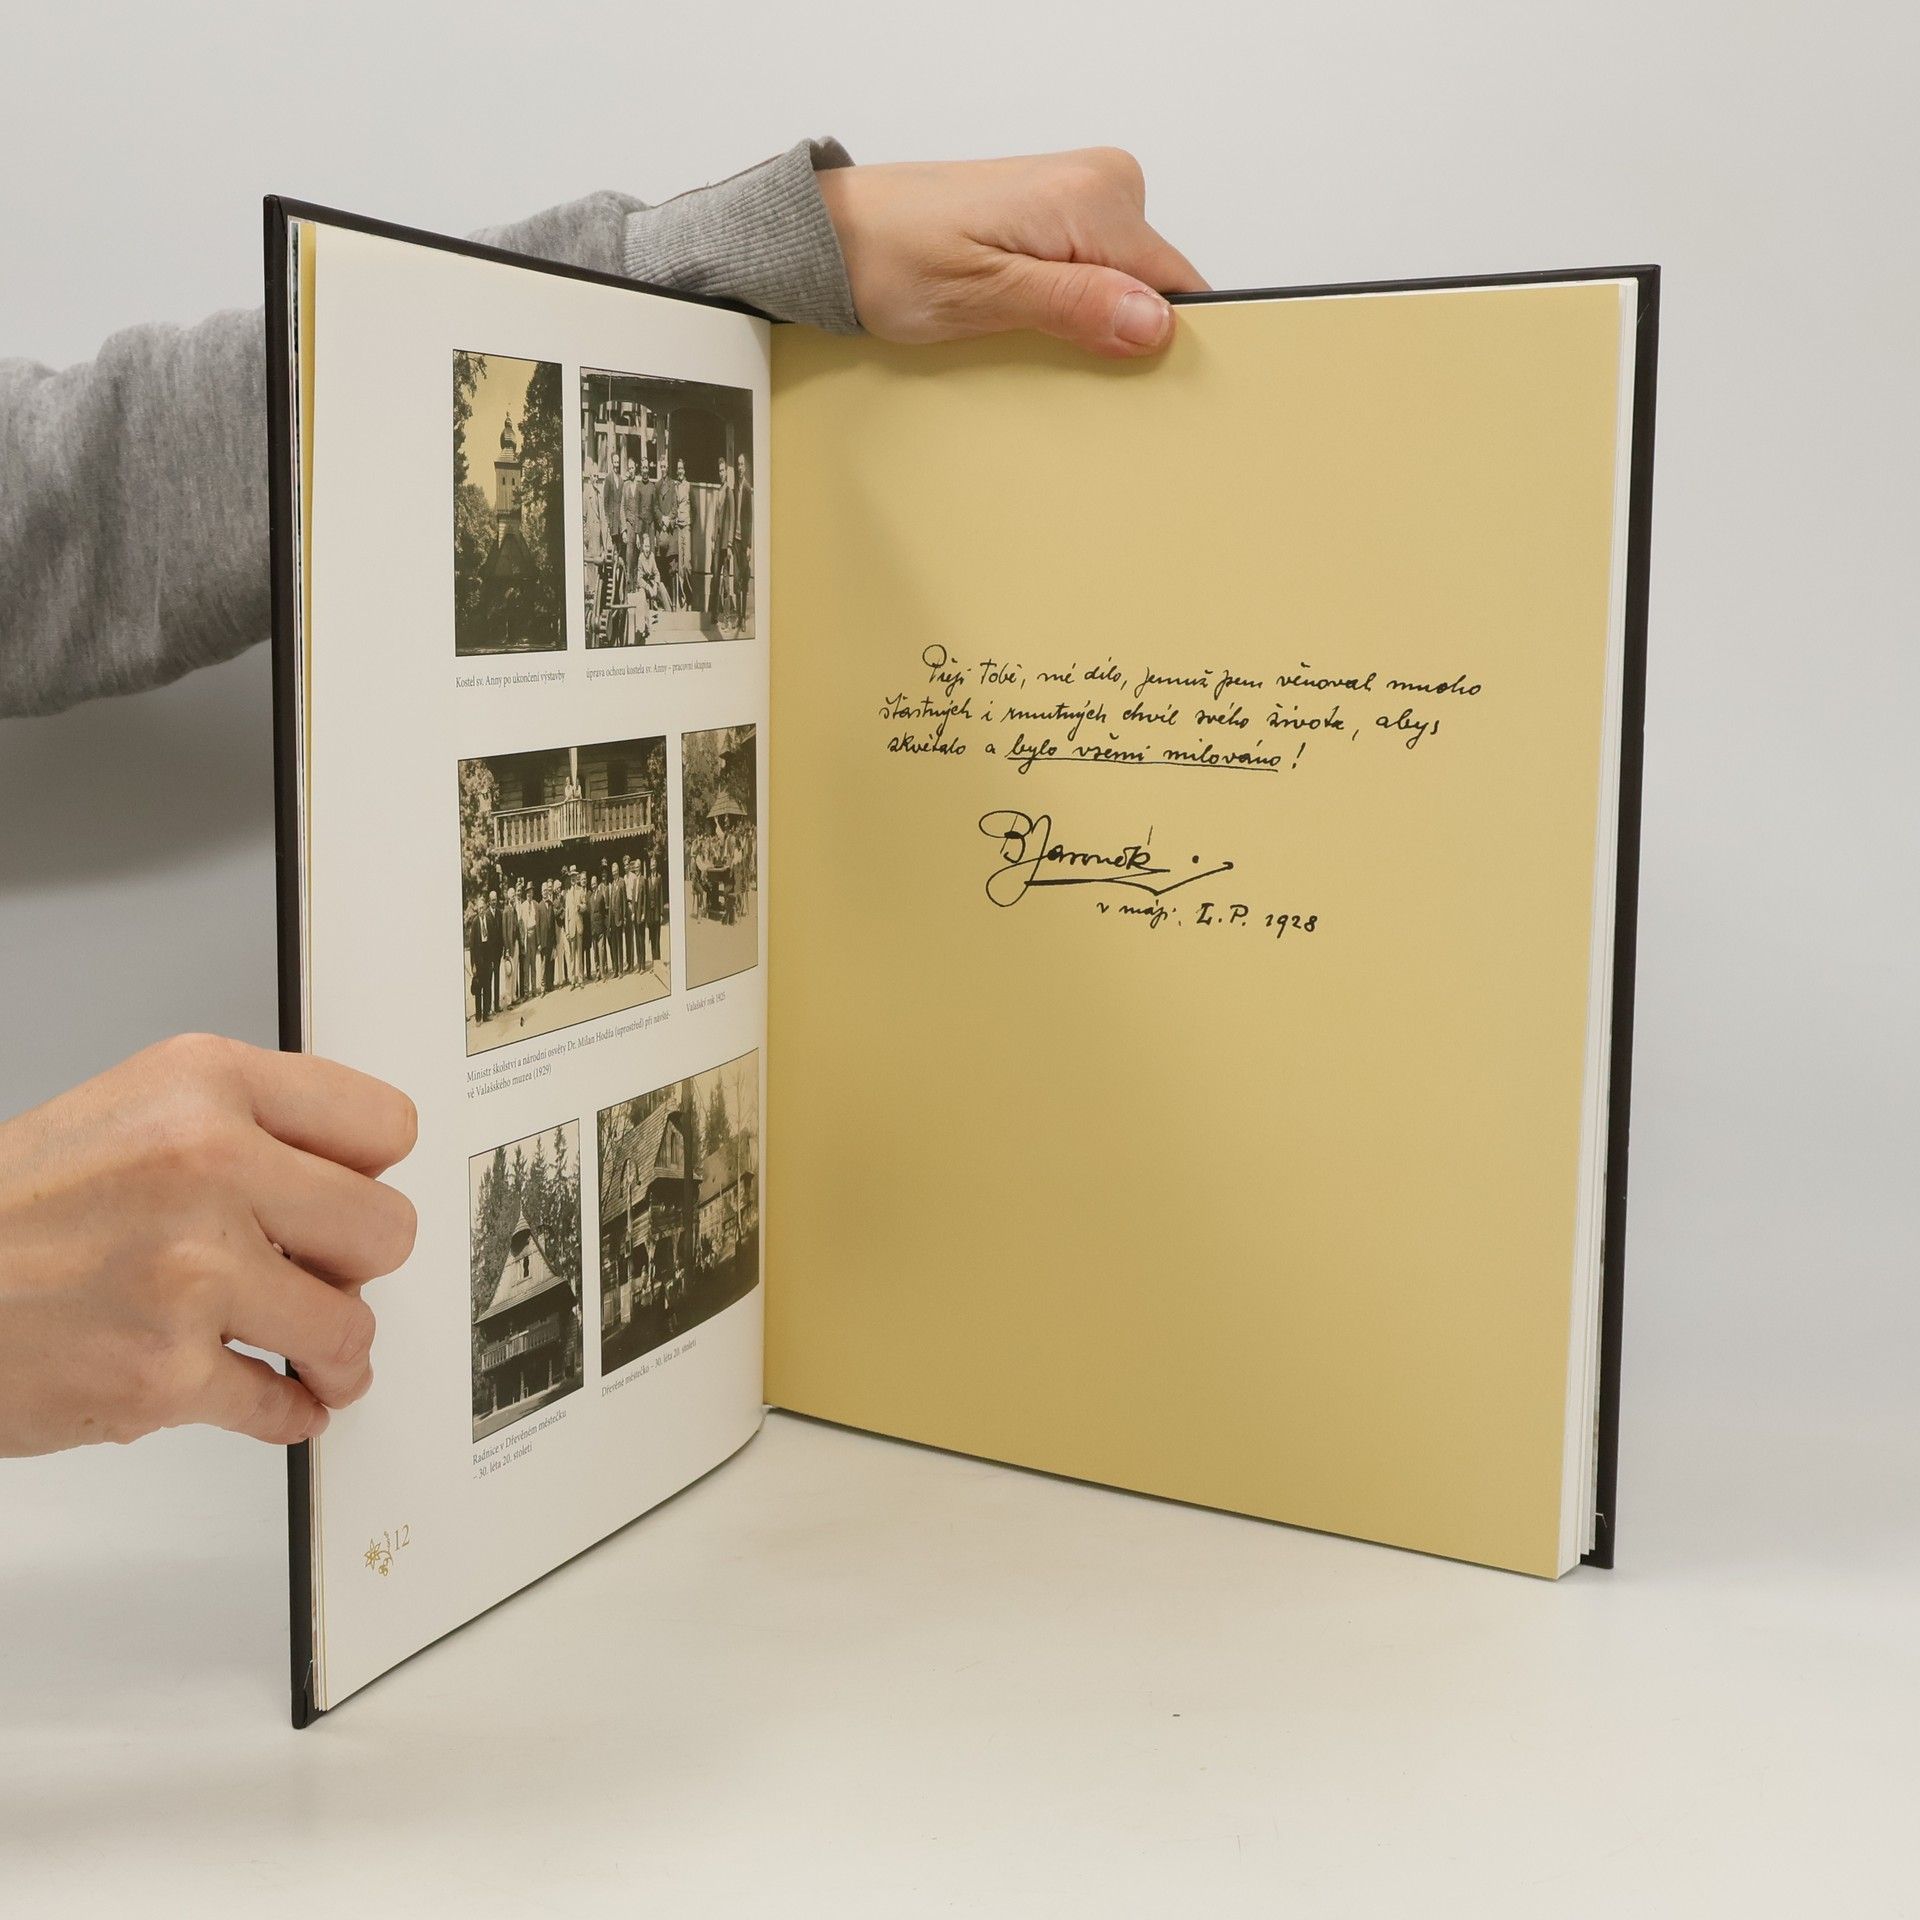 Kostel sv. Anny po ukončení výstavby
úprava ochozu kostela sv. Anny – pracovní skupina
Ministr školství a národní osvěty Dr. Milan Hodža (uprostřed) při návště-
vě Valašského muzea (1929)
Valašský rok 1925
Radnice v Dřevěném městečku
– 30. léta 20. století
Dřevěné městečko – 30. léta 20. století
12
Přeji Tobě, mé dílo, jemuž jsem věnoval mnoho
šťastných i smutných chvil svého života, abys
zkvétalo a bylo všemi milováno!
B Jaroněk.
v máji. L.P. 1928